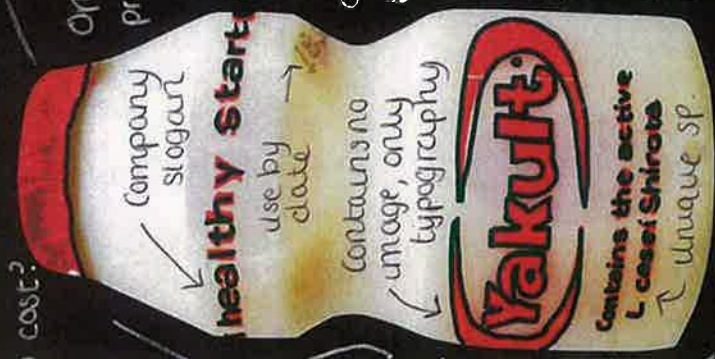 cost?
Company
slogan
healthy start
use by
date
Contains no
image, only
typography
Yakult
Contains the active
L casei Shirota
unique sp.